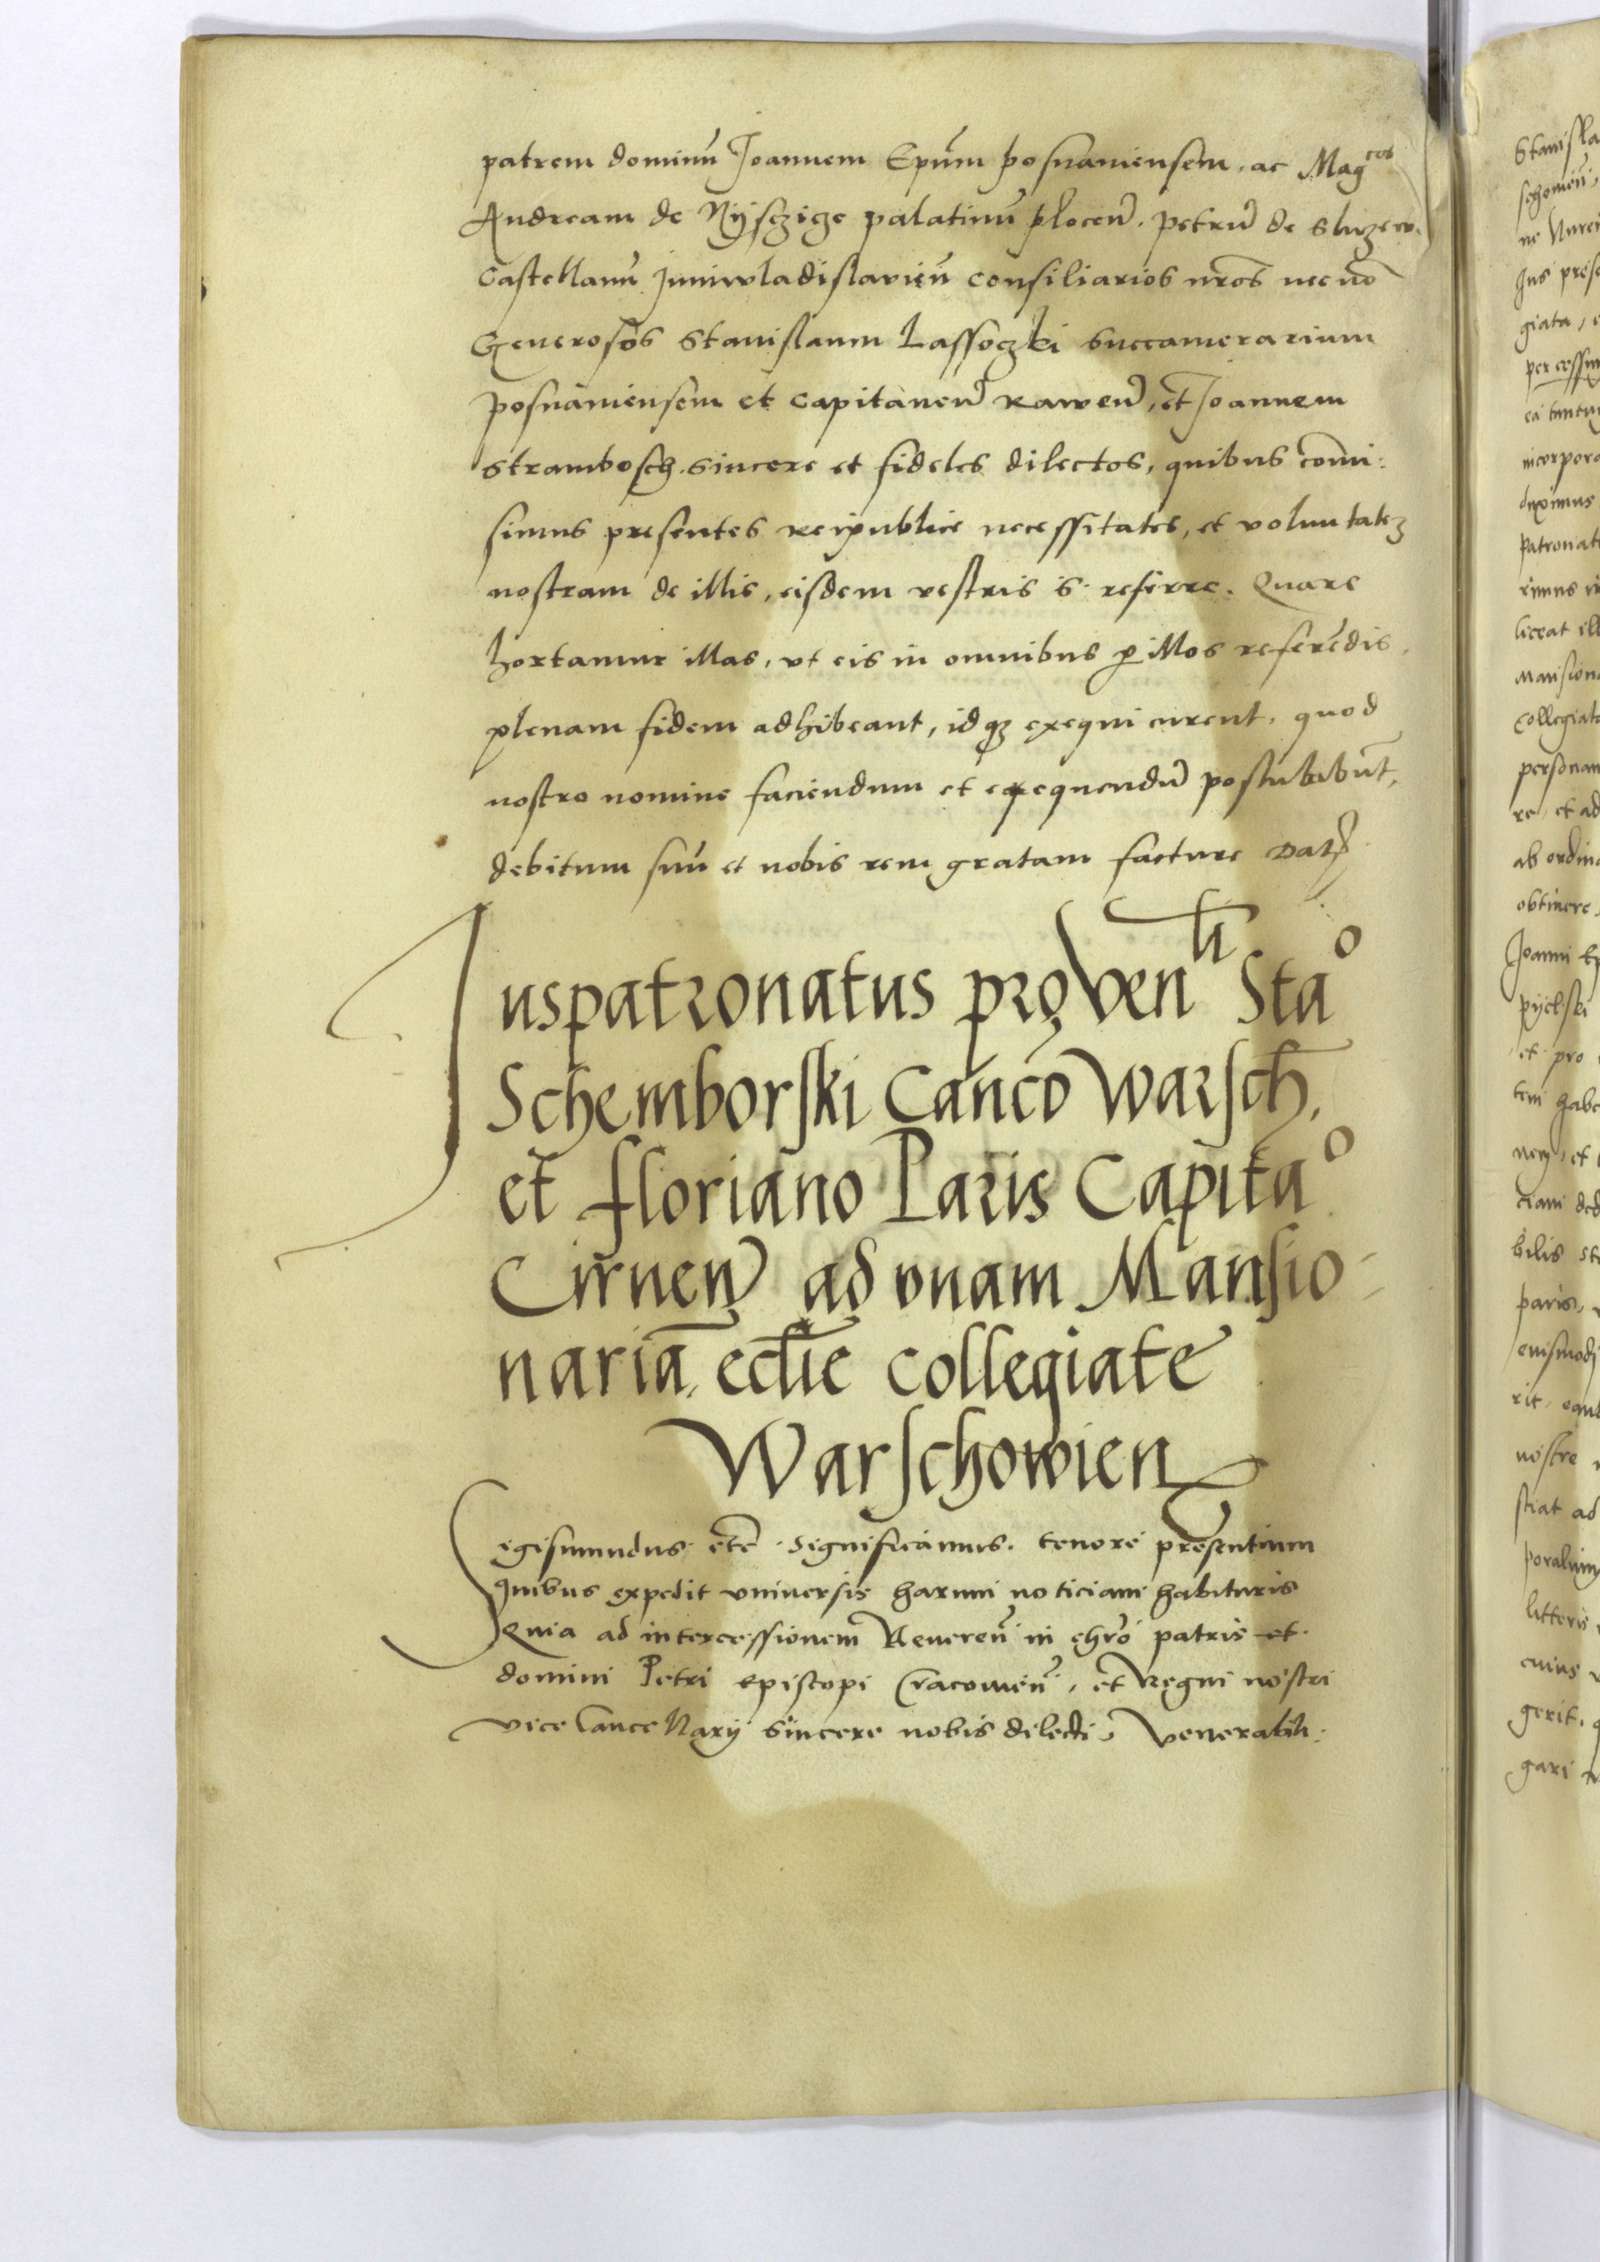 patrem dominū Joannem Epūm posnaniensem. ac Mag^cos
Andream de Nijsczicze palatinū plocen̄. petrū de sluzew.
Castellanū Juniwladislavien̄ consiliarios nr̄os necnō
Generosos Stanislaum Lassoczki succamerarium
posnaniensem et capitaneū Rawen̄, et Joannem
strambosch. sincere et fideles dilectos, quibus com̄i:
simus presentes reipublice necessitates, et voluntatez
nostram de illis, eisdem vestris s. referre. Quare
hortamur illas, vt eis in omnibus p̱ illos referēdis,
plenam fidem adhibeant, idqꝫ exequi curent. quod
nostro nomine faciendum et exequendū postulabūt,
debitum suū et nobis rem gratam facture Datꝭ
Juspatronatus pro Ven^li Sta^o
Schemborski Canco Warsch.
et floriano Paris Capita^o
Cirnen̄ ad vnam Mansio-
nariā, eccl̄ie Collegiate
Warschowien
Sigismundus etc̄. Significamus. tenore presentium
quibus expedit vniversis harum noticiam habituris
Quia ad intercessionem Reveren̄ in chr̄o patris et
domini Petri episcopi Cracovien̄, et Regni nostri
vice Cancellarij sincere nobis dilecti, Venerabili:
Stanisla
ne
Jus prese
giata,
per cessum
incorpora
duximus
patronat
rimus
liceat ill
mansion
Collegiat
personam
re, et ad
ab ordin
obtinere,
Joanni
et pro
tem habe
ciam ded
bilis st
paris,
eiusmodi
rit.
nostre
fiat ad
litteris
cuius
gerit.
gari